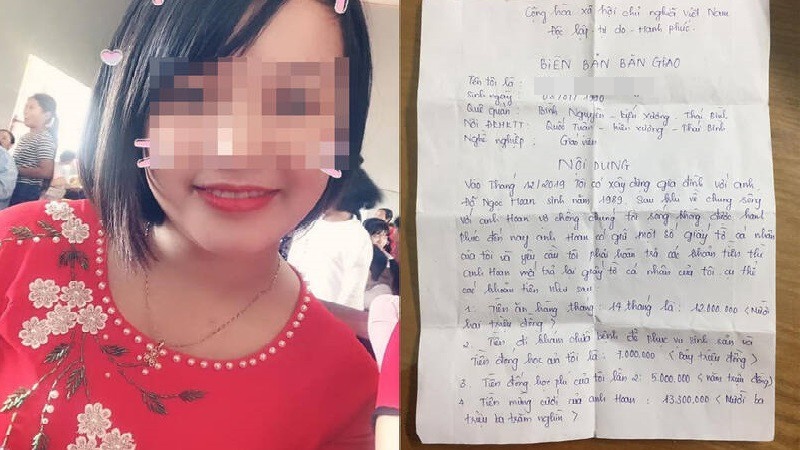 Cộng hòa xã hội chủ nghĩa Việt Nam
Độc lập - tự do - Hạnh phúc.
BIÊN BẢN BÀN GIAO
Tên tôi là :
Sinh ngày : /1990
Quê Quán : Bình Nguyên - Kiến Xương - Thái Bình
Nơi ĐKHKTT : Quốc Tuấn - Kiến Xương - Thái Bình
Nghề nghiệp : Giáo viên
NỘI DUNG
Vào Tháng 12/2019 Tôi có xây dựng gia đình với anh
Đỗ Ngọc Hoan sinh năm 1989. Sau khi về chung sống
với anh Hoan vợ chồng chúng tôi sống không được hạnh
phúc đến nay anh Hoan có giữ một số giấy tờ cá nhân
của tôi và yêu cầu tôi phải hoàn trả các khoản tiền thì
anh Hoan mới trả lại giấy tờ cá nhân của tôi cụ thể
các khoản tiền như sau
1. Tiền ăn hàng tháng : 14 tháng là : 12.000.000 < Mười
hai triệu đồng >
2. Tiền đi khám chữa bệnh để phục vụ sinh sản và
Tiền đóng học của tôi là : 7.000.000 < bảy triệu đồng >
3 Tiền đóng học phí của tôi lần 2: 5.000.000 < năm triệu đồng >
4 Tiền mừng cưới của anh Hoan : 13.300.000 < Mười ba
triệu ba trăm nghìn >